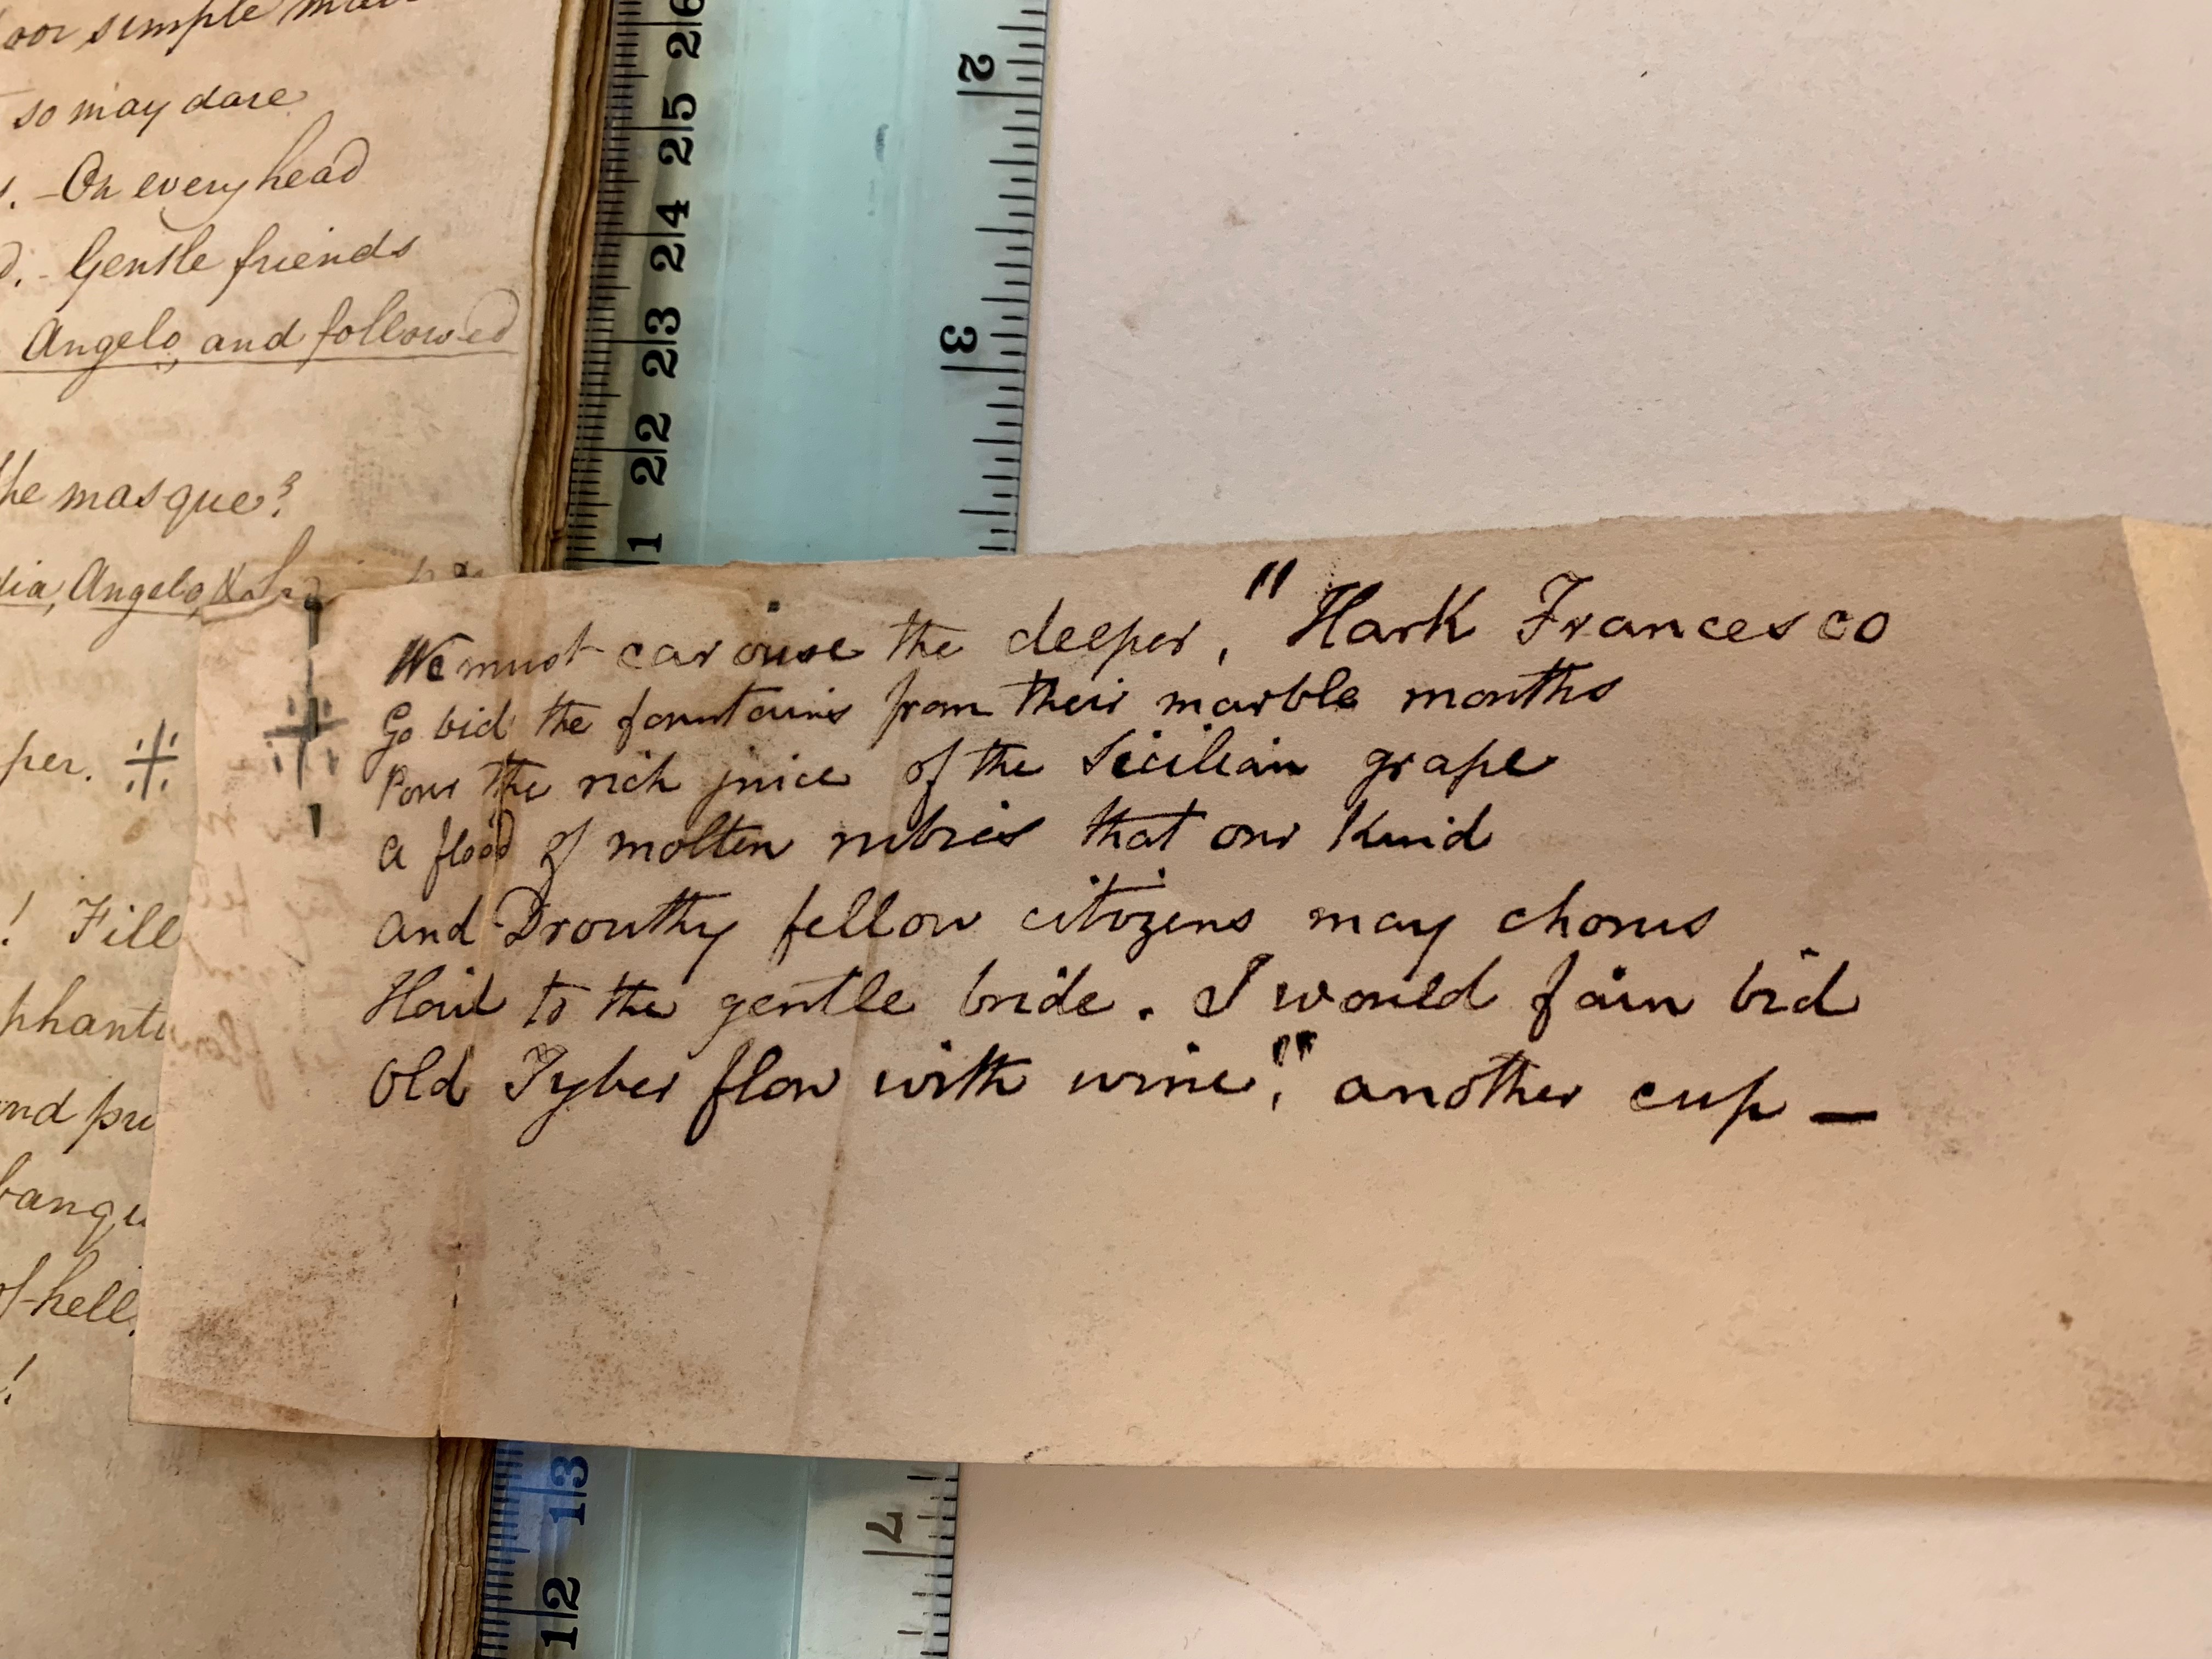 so may dare
. - On every head
. - Gentle friends
Angelo, and followed
he masque?
dia, Angelo, &
per. ※
! Fill
phant
nd pu
banqu
of hell.
!
We must carouse the deeper, "Hark Francesco
Go bid the fountains from their marble mouths
Pour the rich juice of the Sicilian grape
a flood of molten rubies that our Kind
and Drouthy fellow citizens may chorus
Hail to the gentle bride. I would fain bid
Old Tyber flow with wine," another cup —
26
25
24
23
22
1
13
12
2
3
7